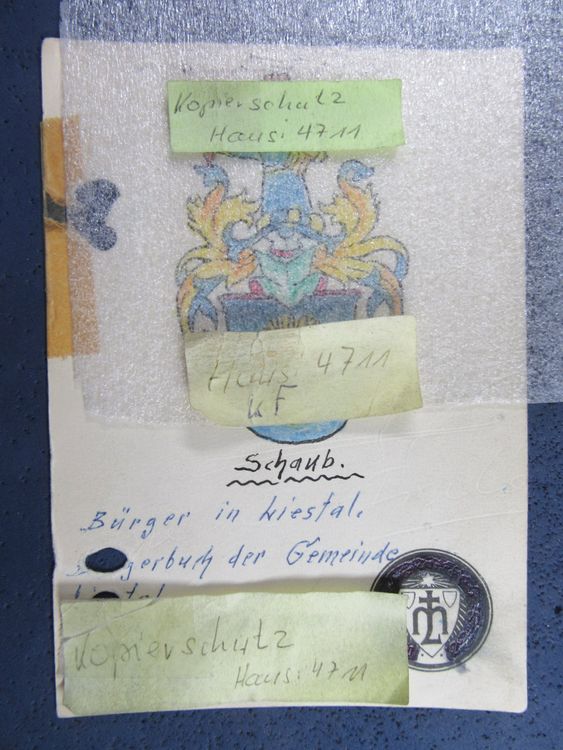 Kopierschutz
Hansi 4711
Hansi 4711
KF
Schaub.
Bürger in Liestal.
gerbuch der Gemeinde
Kopierschutz
Hansi 4711